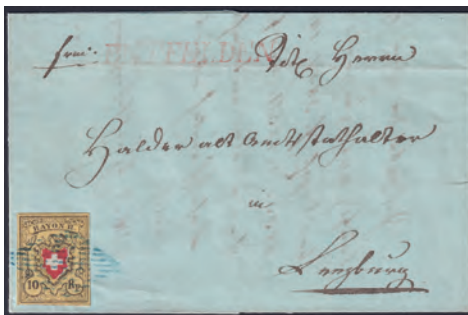 franco ENTFELDEN Tit. Herrn
Halder alt Amtsstatthalter
in
Lenzburg
RAYON II
10 Rp.